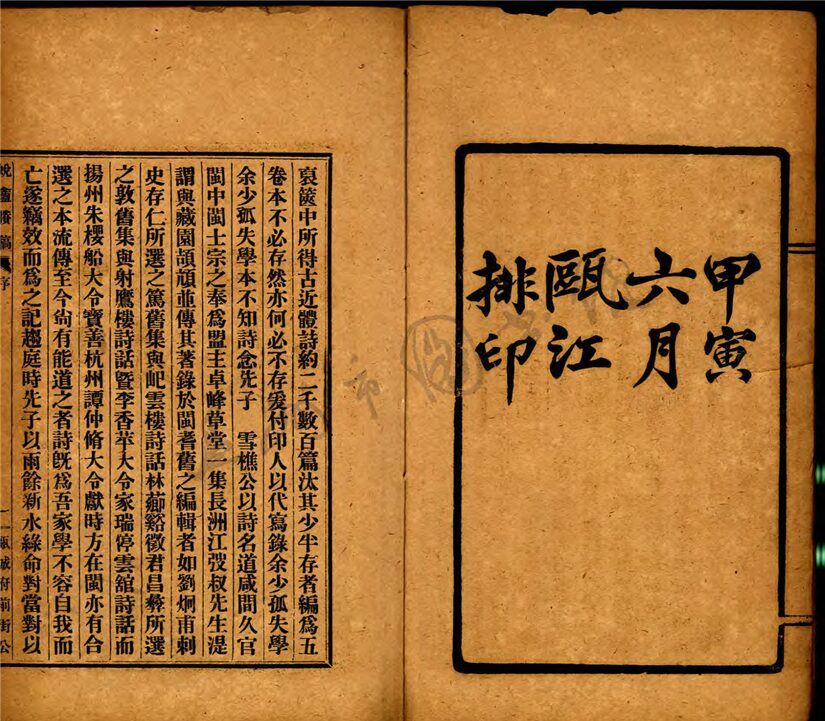 甲寅
六月
甌江
排印
裒篋中所得古近體詩約二千數百篇汰其少半存者編爲五
卷本不必存然亦何必不存爰付印人以代寫錄余少孤失學
余少孤失學本不知詩念先子 雪樵公以詩名道咸間久官
閩中閩士宗之奉爲盟主卓峰草堂一集長洲江弢叔先生湜
謂與藏園頡頏並傳其著錄於閩耆舊之編輯者如劉炯甫刺
史存仁所選之篤舊集與屺雲樓詩話林薌谿徵君昌彝所選
之敦舊集與射鷹樓詩話暨李香苹大令家瑞停雲舘詩話而
揚州朱櫻船大令寶善杭州譚仲脩大令獻時方在閩亦有合
選之本流傳至今尙有能道之者詩旣爲吾家學不容自我而
亡遂竊效而爲之記趨庭時先子以雨餘新水綠命對當對以
蛻盦賸稿 序 一 甌城府前街公